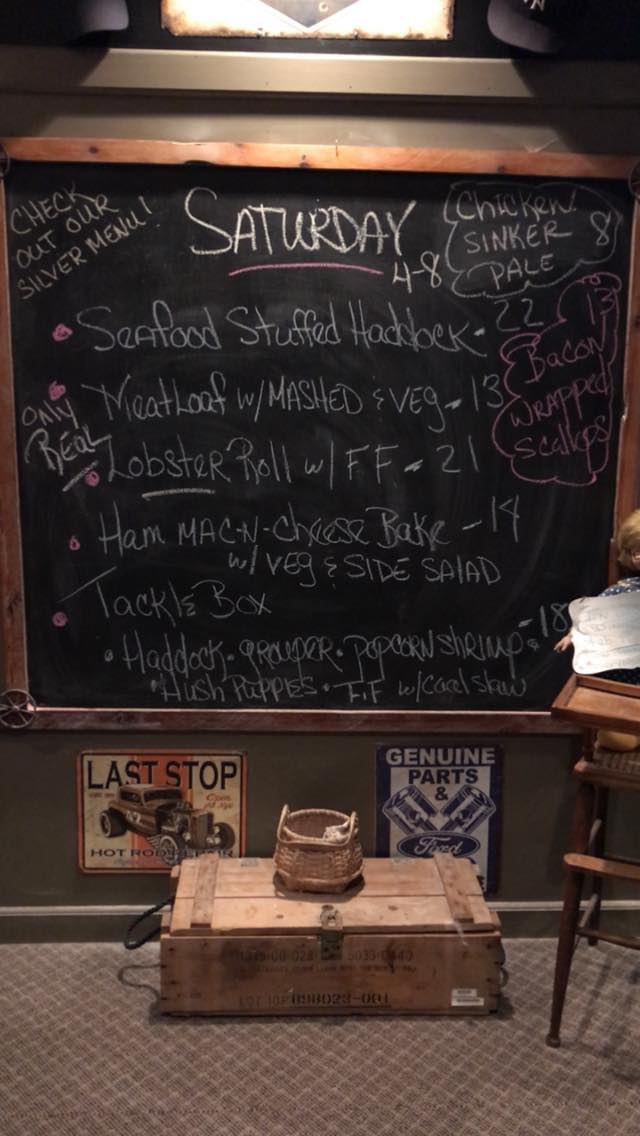 CHECK
OUT OUR
SILVER MENU!
SATURDAY
4-8
Chicken
SINKER 8
PALE
Seafood Stuffed Haddock - 22
13
Bacon
Wrapped
Scallops
Meatloaf w/MASHED & VEG - 13
Only
Real
Lobster Roll w/ FF - 21
Ham MAC-N-Cheese Bake - 14
w/ VEG & SIDE SALAD
Tackle Box
• Haddock • grouper • popcorn shrimp - 18
• Hush Puppies • F.F w/Coal Slaw
LAST STOP
HOT ROD REPAIR
GENUINE
PARTS
&
Ford